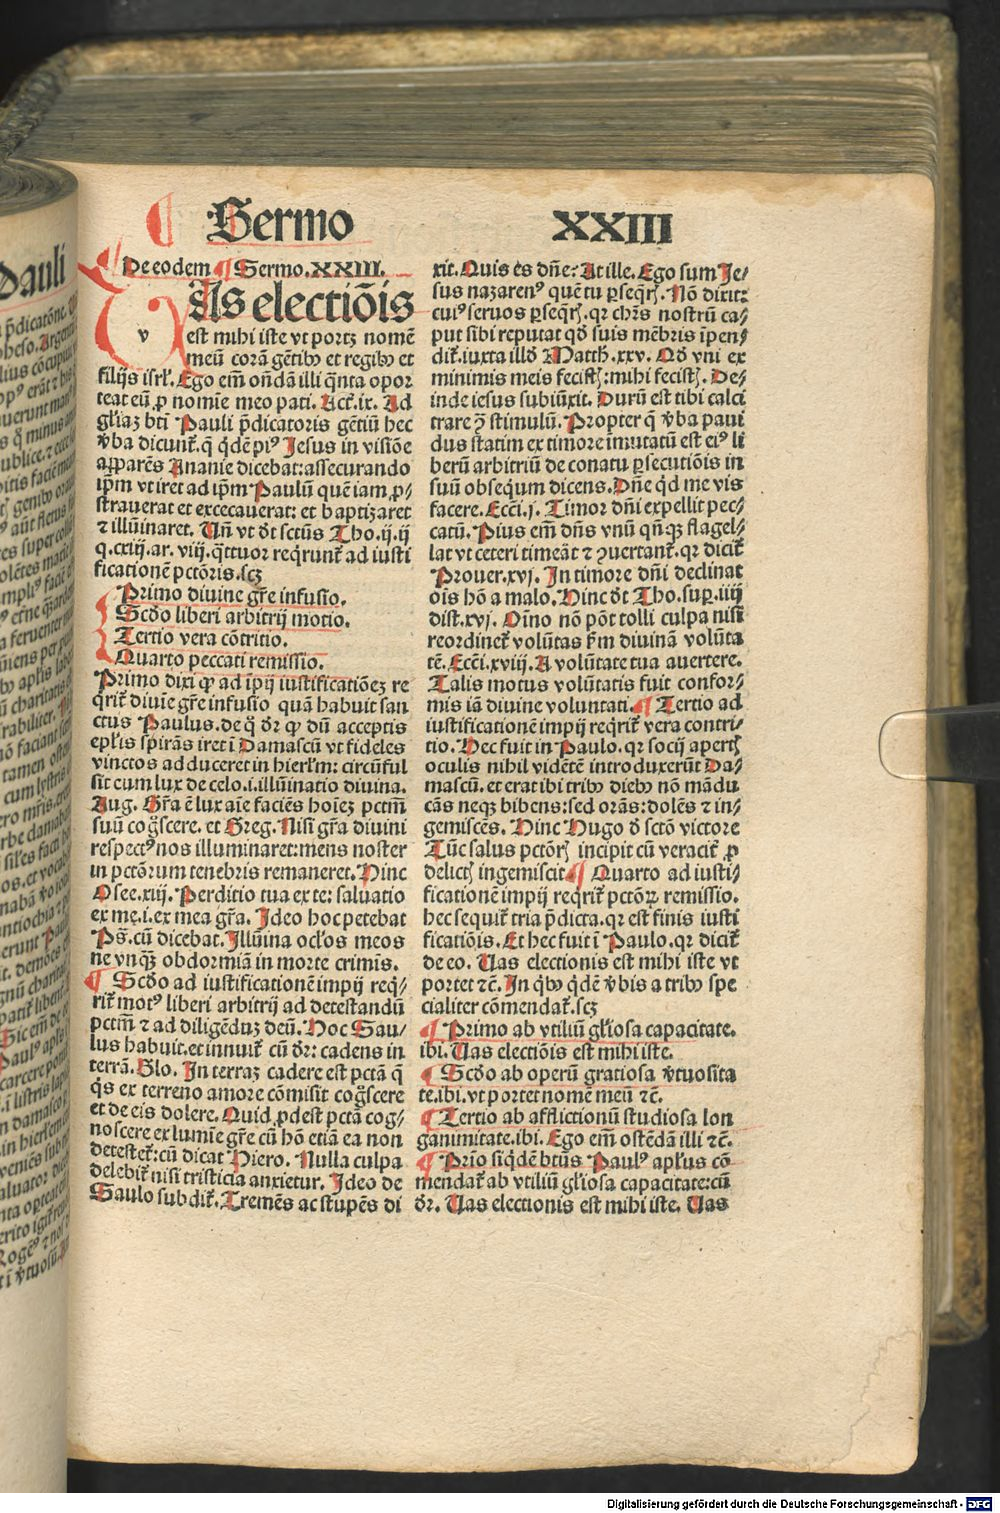 Sermo XXIII
De eodem ¶ Sermo.XXIII.
Uas electiōis
est mihi iste vt portꝫ nomē
meū corā gētibꝰ et regibꝰ et
filijs isrl̓. Ego em̄ on̄dā illi q̄nta opor
teat eū ꝓ nomīe meo pati. Act̓.ix. Ad
gl̓iaꝫ bt̄i Pauli p̄dicatoris gētiū hec
v̓ba dicunt̓. q̄ q̇dē piꝰ Jesus in visiōe
apparēs Ananie dicebat: assecurando
ip̄m vt iret ad ip̄m Paulū quē iam ꝓ-
strauerat et excecauerat: et baptizaret
⁊ illūinaret. Un̄ vt dt̄ sct̄us Tho.ij.ij
q.cxiij.ar. viij. q̄ttuor req̇runt̓ ad iusti
ficationē pctōris.scꝫ
Primo diuine gr̄e infusio.
Scd̓o liberi arbitrij motio.
Tertio vera cōtritio.
Quarto peccati remissio.
Primo dixi ꝙ ad īpij iustificatiōeꝫ re
q̇rit̓ diuīe gr̄e infusio quā habuit san
ctus Paulus. de q̊ dr̄ ꝙ dū acceptis
epl̓is spirās iret ī Damascū vt fideles
vinctos adduceret in hierl̓m: circūful
sit eum lux de celo.i. illūinatio diuina.
Aug. Gr̄a ē lux aīe faciēs hoīeꝫ pctm̄
suū cog̊scere. et Greg. Nisi gr̄a diuini
respectꝰ nos illuminaret: mens noster
in pctōrum tenebris remaneret. Hinc
Osee.xiij. Perditio tua ex te: saluatio
ex me.i. ex mea gr̄a. Jdeo hoc petebat
Ps̄. cū dicebat. Jllūina ocl̓os meos
ne vnq̄ꝫ obdormiā in morte crimis.
¶ Scd̓o ad iustificationē impij req̇-
rit̓ motꝰ liberi arbitrij ad detestandū
pctm̄ ⁊ ad diligēduꝫ deū. Hoc Sau-
lus habuit. et innuit̓ cū dr̄: cadens in
terrā. Glo. Jn terraꝫ cadere est pctā q̄
q̇s ex terreno amore cōmisit cog̊scere
et de eis dolere. Quid ꝓdest pctā cog-
noscere ex lumīe gr̄e cū hō etiā ea non
detestet̓: cū dicat Piero. Nulla culpa
delebit̓ nisi tristicia anxietur. Jdeo de
Saulo subdit̓. Tremēs ac stupēs di
xit. Quis es dn̄e: At ille. Ego sum Je-
sus nazarenꝰ quē tu ꝑseq̇rꝭ. Nō dixit:
cuiꝰ seruos ꝑseq̇rꝭ. qr chr̄s nostrū ca-
put sibi reputat qd̓ suis mēbris īpen-
dit̓. iuxta illd̓ Matth̓.xxv. Qd̓ vni ex
minimis meis fecistꝭ: mihi fecistꝭ. De-
inde iesus subiūxit. Durū est tibi calci
trare ꝯ̄ stimulū. Propter q̄ v̓ba paui
dus statim ex timore imutatū est eiꝰ li
berū arbitriū de conatu ꝑsecutiōis in
suū obseq̇um dicens. Dn̄e q̇d me vis
facere. Ecc̄i.j. Timor dn̄i expellit pec-
catū. Pius em̄ dn̄s vnū qn̄qꝫ flagel-
lat vt ceteri timeāt ⁊ ꝯuertant̓. qr dicit̓
Prouer.xvj. Jn timore dn̄i declinat
ois hō a malo. Hinc dt̄ Tho.suꝑ.iiij
dist.xvj. Oīno nō pōt tolli culpa nisi
reordinet̓ volūtas ẜm diuinā volūta
tē. Ecc̄i.xviij. A volūtate tua auertere.
Talis motus volūtatis fuit confor-
mis iā diuine voluntati. ¶ Tertio ad
iustificationē impij req̇rit̓ vera contri-
tio. Hec fuit in Paulo. qr socij apertꝭ
oculis nihil vidētē introduxerūt Da-
mascū. et erat ibi tribꝰ diebꝰ nō mādu
cās neqꝫ bibens: sed orās: dolēs ⁊ in-
gemiscēs. Hinc Hugo d̓ sctō victore
Tūc salus pctōrꝭ incipit cū veracit̓ ꝓ
delictꝭ ingemiscit ¶ Quarto ad iusti-
ficationē impij req̇rit̓ pctōꝝ remissio.
hec sequit̓ tria p̄dicta. qr est finis iusti
ficatiōis. Et hec fuit ī Paulo. qr dicit̓
de eo. Uas electionis est mihi iste vt
portet ⁊c̄. Jn q̇bꝰ q̇dē v̓bis a tribꝰ spe
cialiter cōmendat̓.scꝫ
¶ Primo ab vtiliū gl̓iosa capacitate.
ibi. Uas electiōis est mihi iste.
¶ Scd̓o ab operū gratiosa v̓tuosita
te.ibi. vt portet nomē meū ⁊c̄.
¶ Tertio ab afflictionū studiosa lon
ganimitate.ibi. Ego em̄ ostēdā illi ⁊c̄.
¶ Prīo siq̇dē bt̄us Paulꝰ apl̓us cō
mendat̓ ab vtiliū gl̓iosa capacitate: cū
dr̄. Uas electionis est mihi iste. Uas
v
Pauli
Digitalisierung gefördert durch die Deutsche Forschungsgemeinschaft - DFG